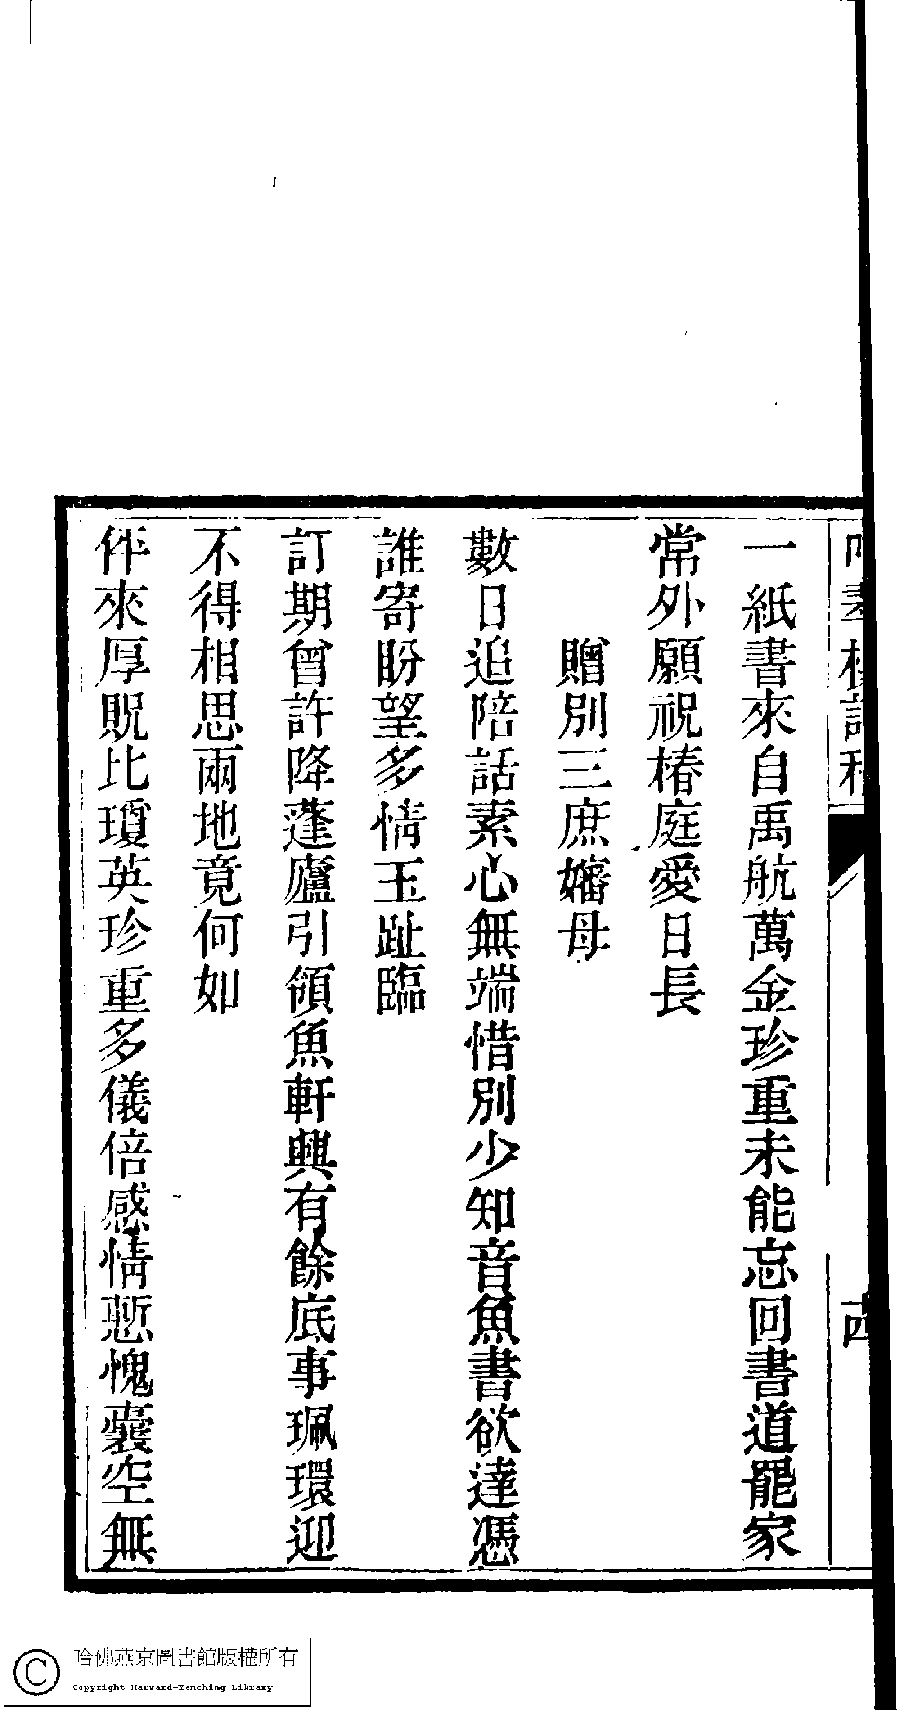 一紙書來自禹航萬金珍重未能忘回書道罷家
常外願祝椿庭愛日長
贈別三庶嬸母
數日追陪話素心無端惜別少知音魚書欲達憑
誰寄盼望多情玉趾臨
訂期曾許降蓬廬引領魚軒興有餘底事珮環迎
不得相思兩地竟何如
伴來厚貺比瓊英珍重多儀倍感情慙愧囊空無
哈佛燕京圖書館版權所有
Copyright Harvard-Yenching Library